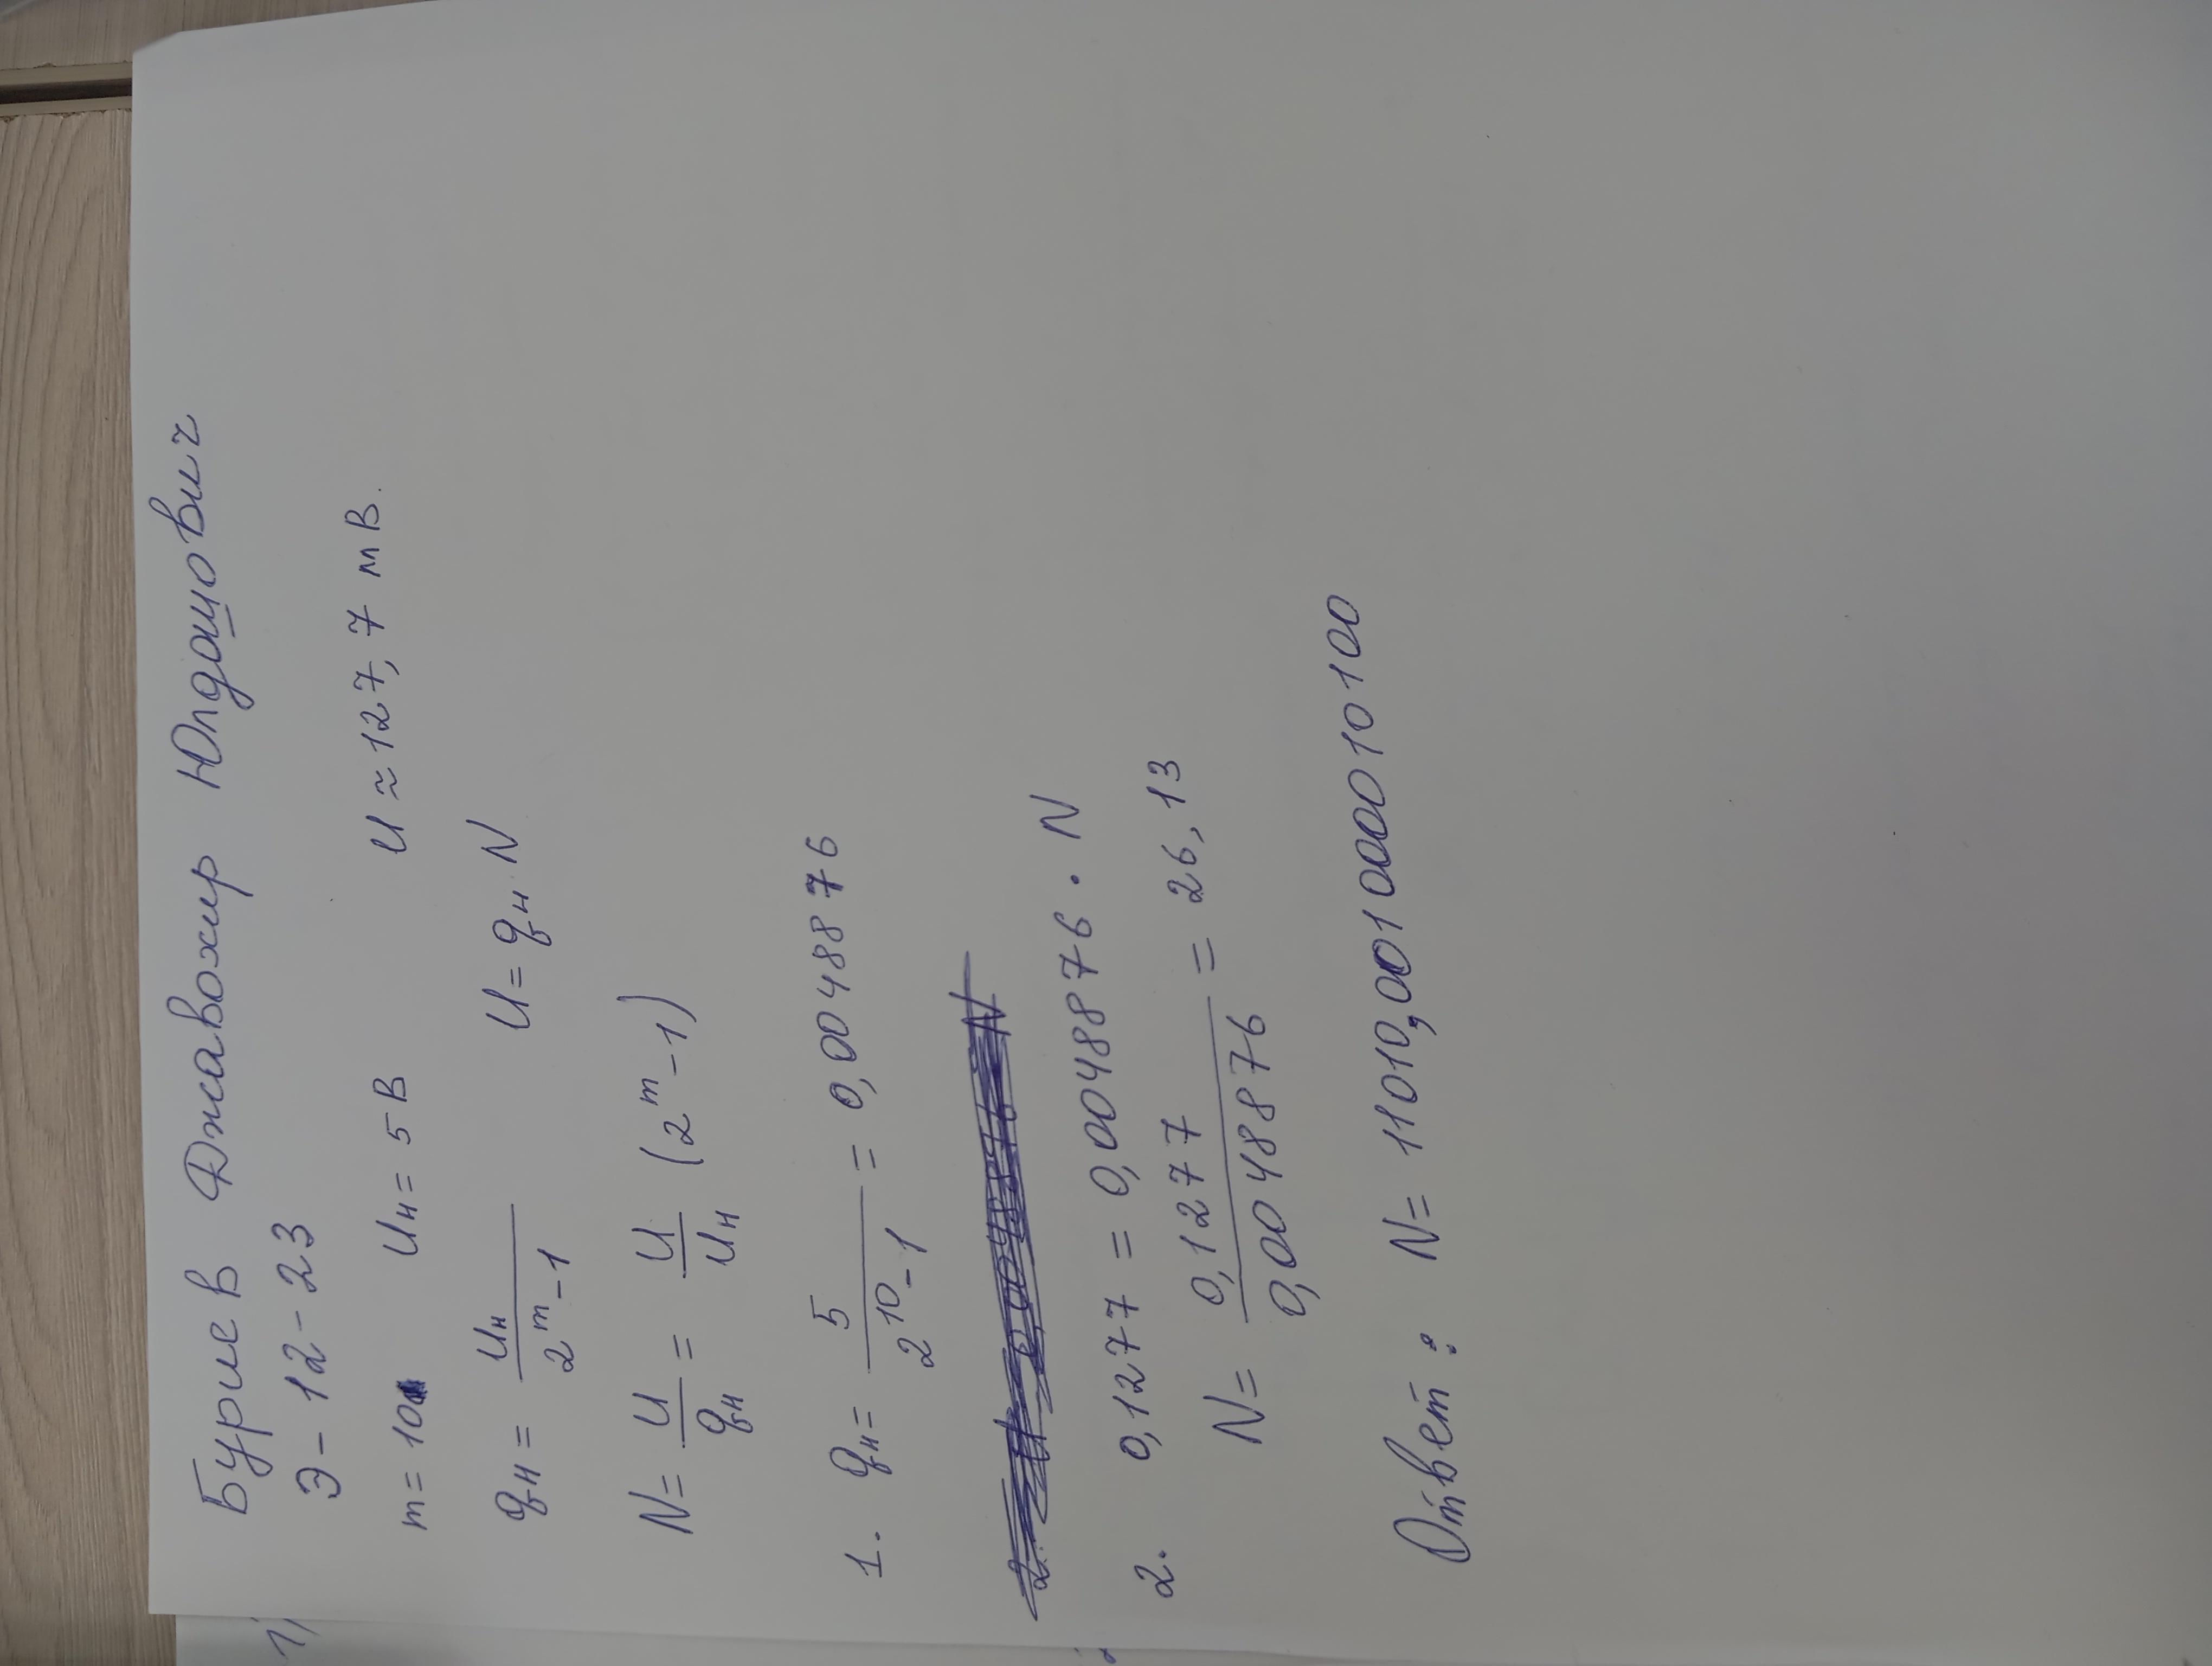 Буриев Джавохир Юлдошович
Э-12-23
m=10 Uн=5В U≈127,7 мВ.
qн = Uн / 2^m-1 U=qн·N
N= U/qн = U/Uн (2^m-1)
1. qн= 5 / 2^10-1 = 0,00488876
2. 0,1277 = 0,00488876 · N
N= 0,1277 / 0,00488876 = 26,13
Ответ: N= 11010,00100001010100